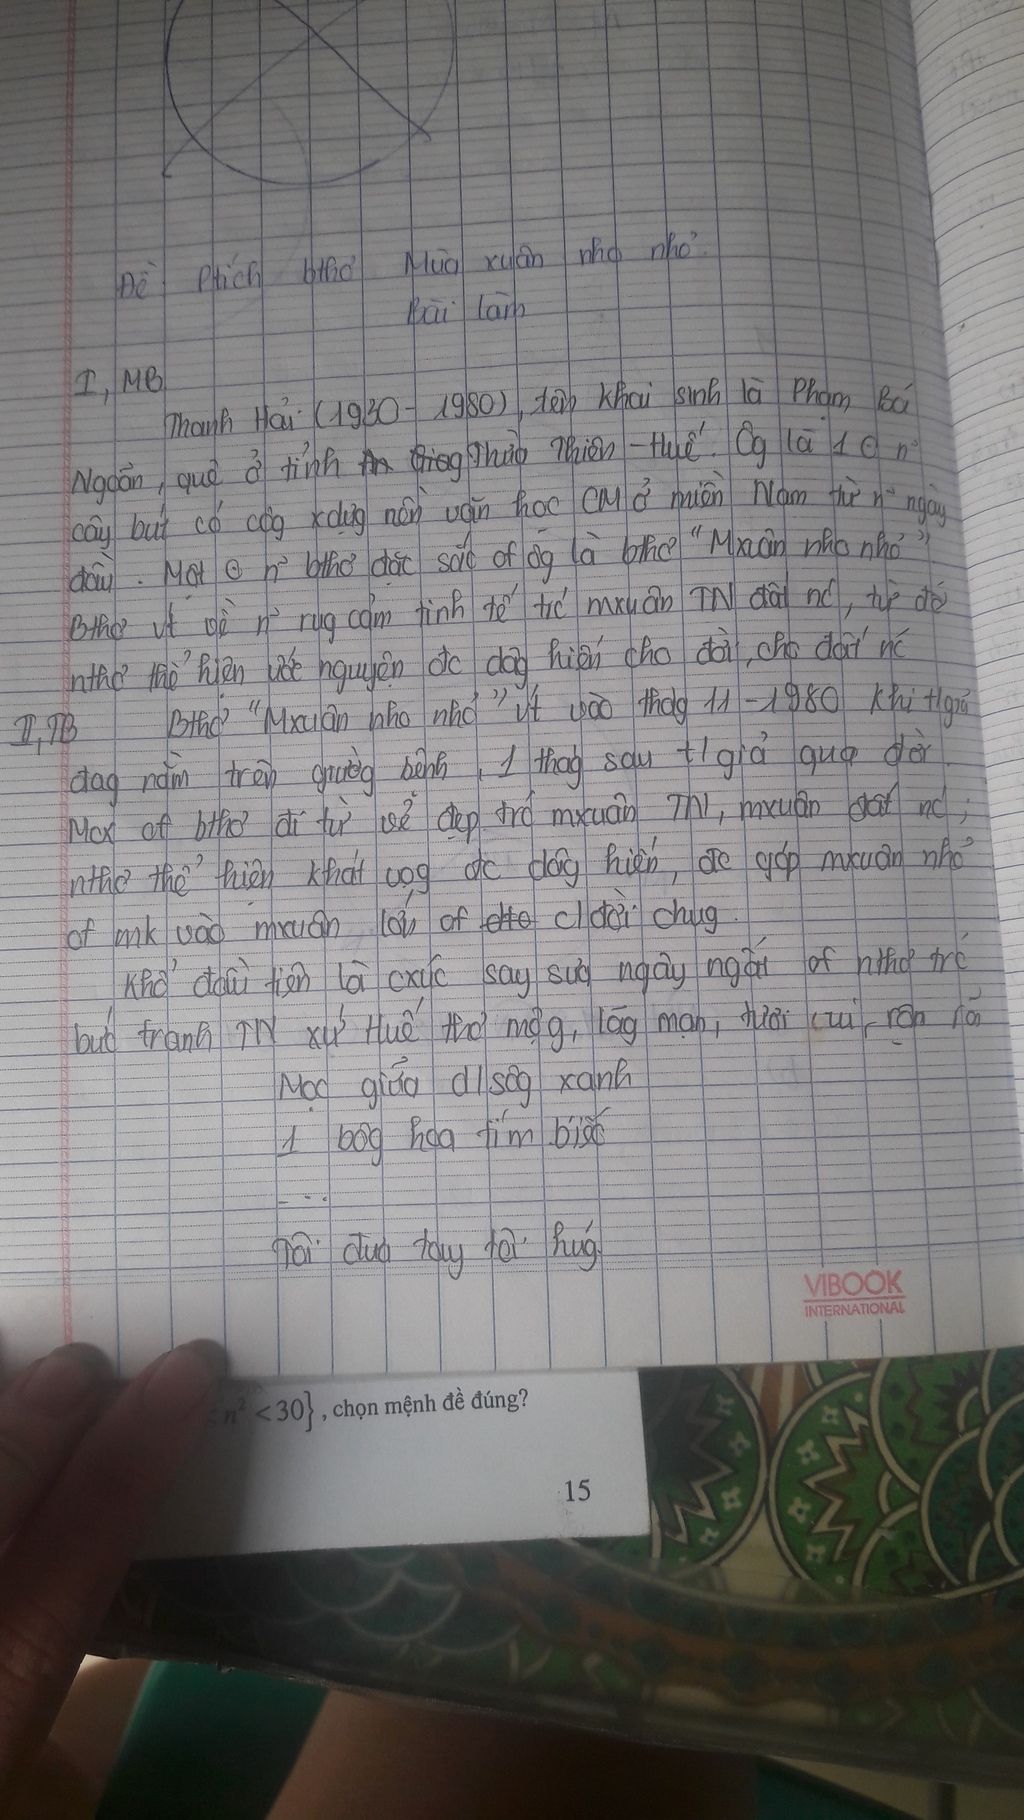 Đề Ptích bthơ Mùa xuân nho nhỏ.
Bài làm
I, MB
Thanh Hải (1930 - 1980), tên khai sinh là Phạm Bá
Ngoãn, quê ở tỉnh Thừa Thiên - Huế. Ôg là 1 n~
cây bút có côg xdựg nền văn học CM ở miền Nam từ n~ ngày
đầu. Một n~ bthơ đặc sắc of ôg là bthơ "Mxuân nho nhỏ"
Bthơ vt về n~ rug cảm tinh tế trc mxuân TN đất nc, từ đó
nthơ thể hiện ước nguyện đc dâg hiến cho đời, cho đất nc
II, TB
Bthơ "Mxuân nho nhỏ" vt vào thág 11 - 1980 khi t/giả
đag nằm trên giườg bệnh, 1 thág sau t/giả qua đời.
Mcx of bthơ đi từ vẻ đẹp trc mxuân TN, mxuân đất nc;
nthơ thể hiện khát vọg đc dâg hiến, đc góp mxuân nhỏ
of mk vào mxuân lớn of c/đời chug.
Khổ đầu tiên là cxúc say sưa ngây ngất of nthơ trc
bức tranh TN xứ Huế thơ mộg, lãg mạn, tươi vui, rộn rã
Mọc giữa d/sôg xanh
1 bôg hoa tím biếc
....
Tôi đưa tay tôi hứg
VIBOOK
INTERNATIONAL
n² < 30}, chọn mệnh đề đúng?
15